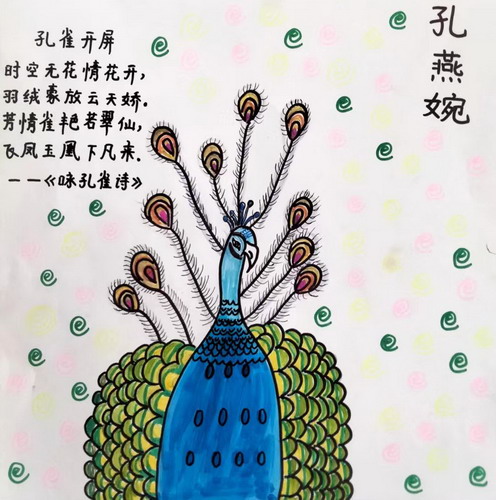 孔雀开屏
时空无花情花开，
羽绒豪放云天娇．
芳情雀艳若翠仙，
飞凤玉凰下凡来．
——《咏孔雀诗》
孔燕婉